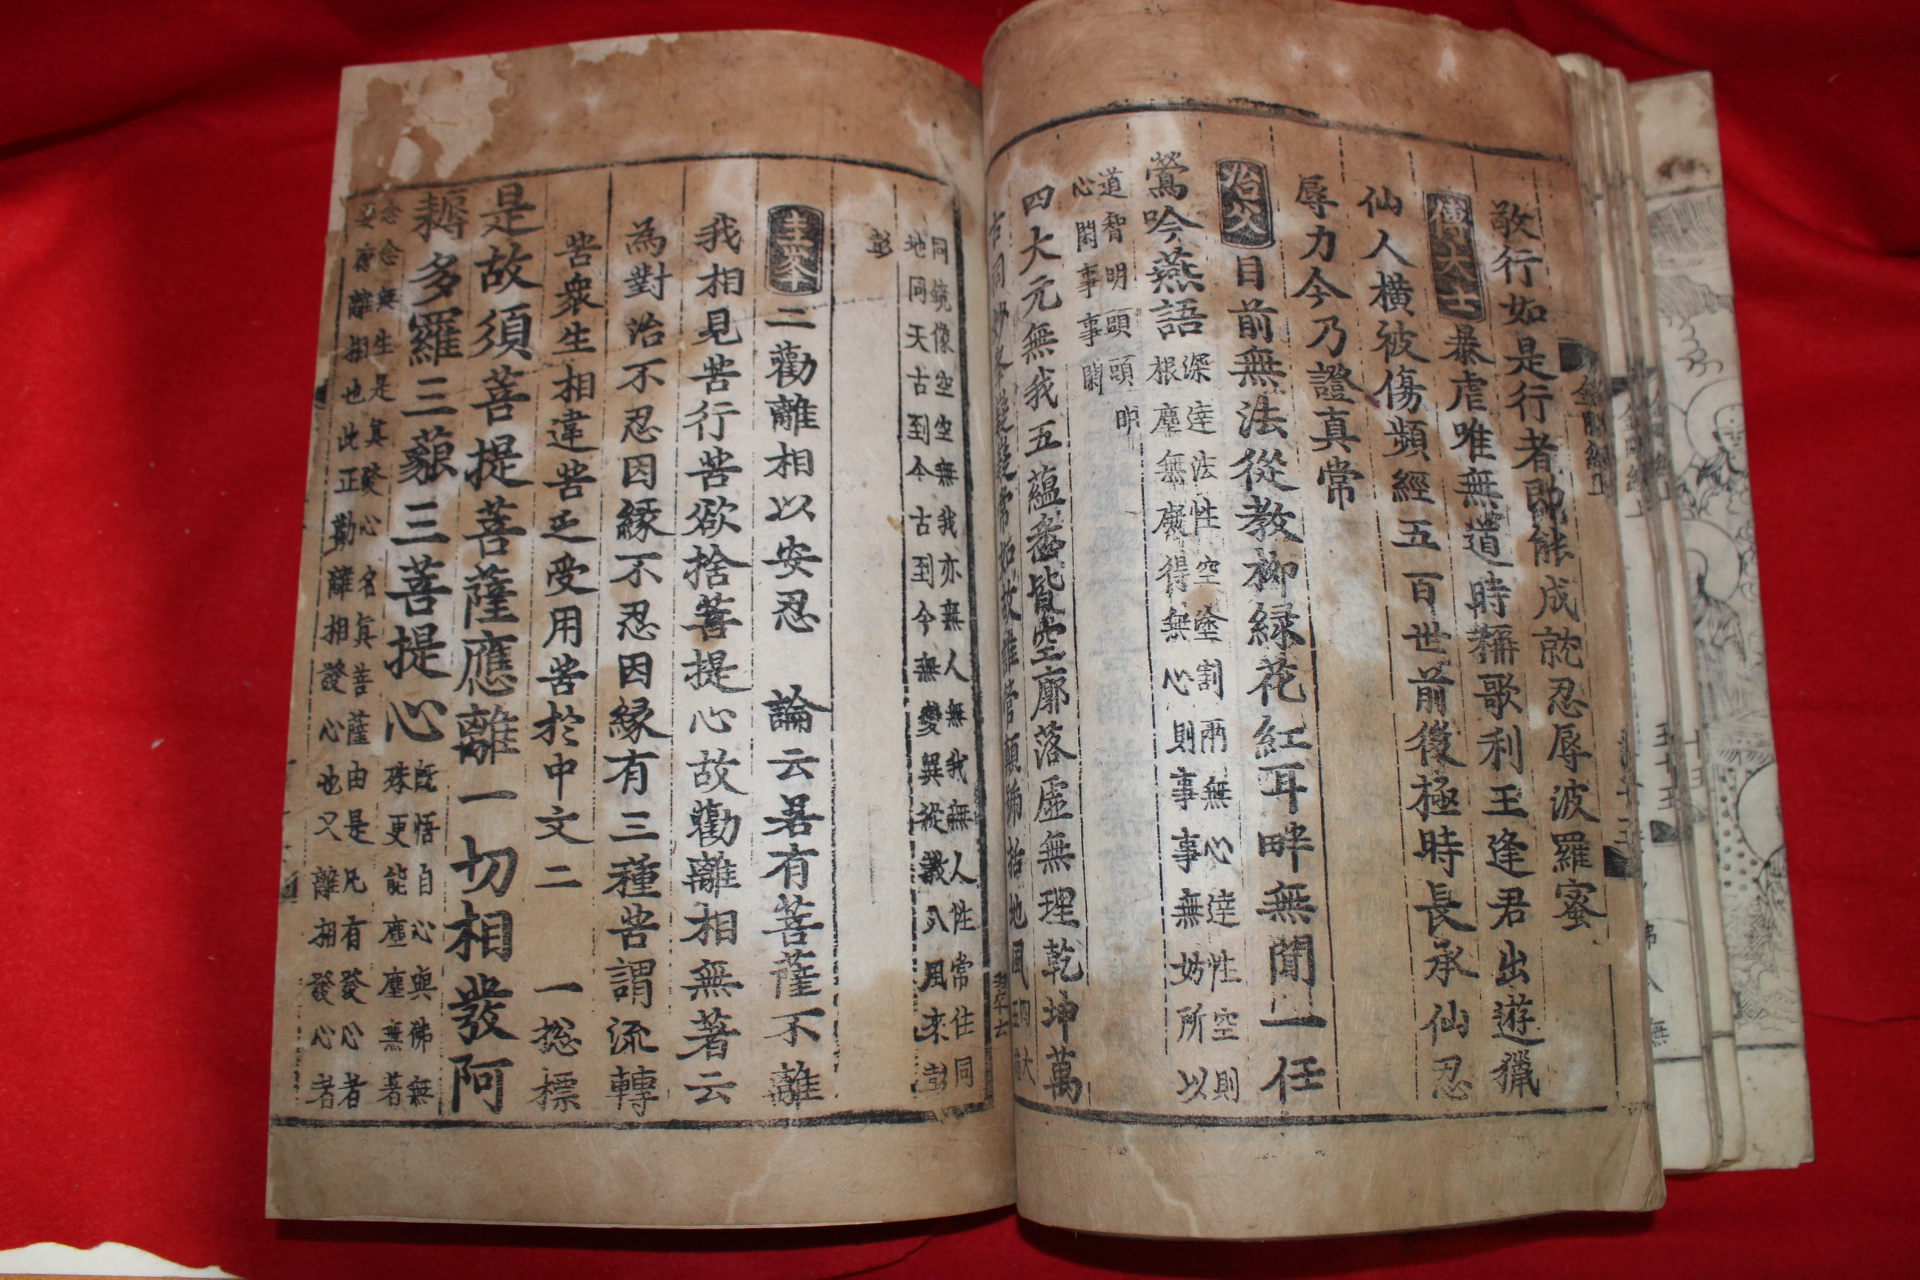 敢行如是行者即能成就忍辱波羅蜜
傅大士 暴虐唯無道時稱歌利王逢君出遊獵
仙人橫被傷頻經五百世前後極時長承仙忍
辱力今乃證真常
冶父 目前無法從教柳緑花紅耳畔無聞一任
鶯吟燕語
深達法性空塗割兩無心達性空則
根塵無礙得無心則事事無妨所以
道智明頭頭明
心閑事事閑
四大元無我五蘊悉皆空廓落虛無理乾坤萬
古同妙
同鏡像空空無我亦無人無我無人性常住同
地同天古到今古到今無變異從教八風來彭
彭
圭峯 二勸離相以安忍 論云若有菩薩不離
我相見苦行苦欲捨菩提心故勸離相無著云
為對治不忍因緣不忍因緣有三種苦謂流轉
苦衆生相違苦乏受用苦於中文二 一惣標
是故須菩提菩薩應離一切相發阿
耨多羅三藐三菩提心
既悟自心與佛無
殊更能塵塵無著
念念無生是真發心名真菩薩由是凡有發心者
要須離相也此正勸離相發心也又離相發心者
金剛經上